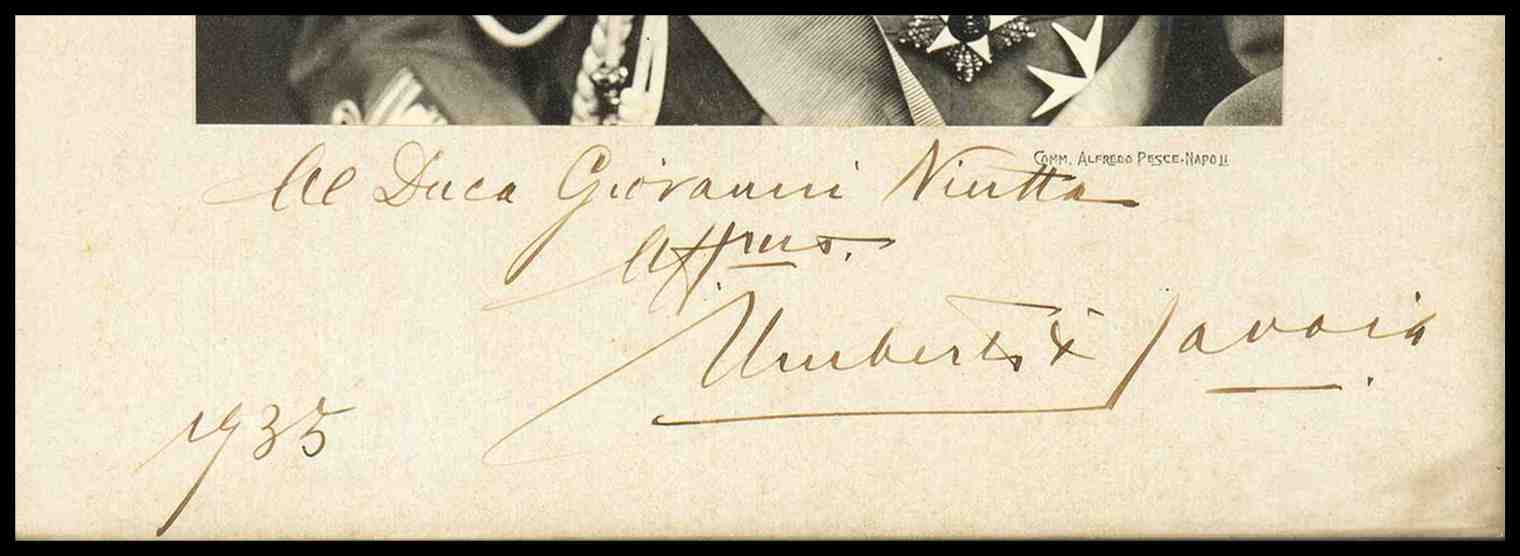 COMM. ALFREDO PESCE-NAPOLI
Al Duca Giovanni Niutta
Affmo.
Umberto di Savoia
1935